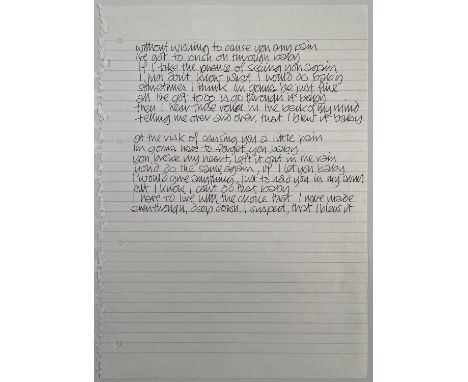 without wishing to cause you any pain
ive got to push on through baby
if i take the phone of seeing you again
i just dont know what i would do baby
sometimes i think im gonna be just fine
all ive got to do is go through it baby
then i hear those voices in the back of my mind
telling me over and over that i blew it baby
at the risk of causing you a little pain
im gonna have to forget you baby
you broke my heart, left it out in the rain
youd do the same again, if i let you baby
i would give anything, just to hold you in my arms
but i know, i cant do that baby
i have to live with the choice that i have made
even though, deep down, i suspect, that i blew it